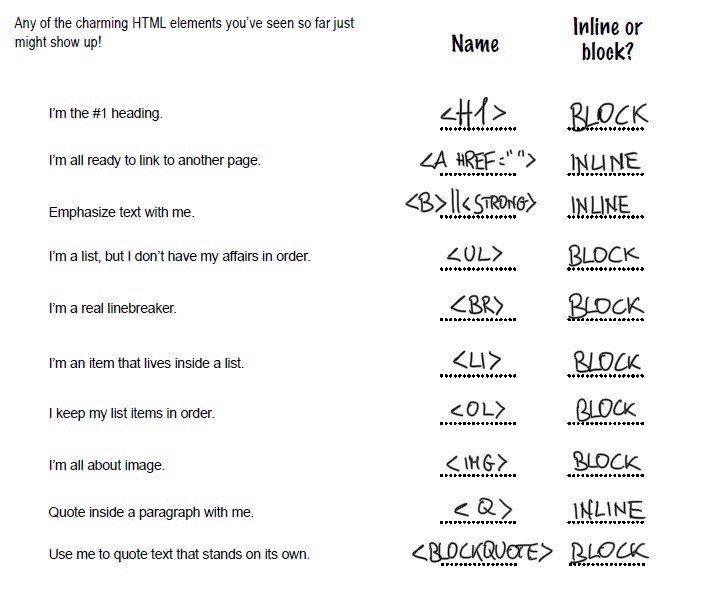 Any of the charming HTML elements you've seen so far just
might show up!
Name
Inline or
block?
I'm the #1 heading. <H1> BLOCK
I'm all ready to link to another page. <A HREF=""> INLINE
Emphasize text with me. <B>||<STRONG> INLINE
I'm a list, but I don't have my affairs in order. <UL> BLOCK
I'm a real linebreaker. <BR> BLOCK
I'm an item that lives inside a list. <LI> BLOCK
I keep my list items in order. <OL> BLOCK
I'm all about image. <IMG> BLOCK
Quote inside a paragraph with me. <Q> INLINE
Use me to quote text that stands on its own. <BLOCKQUOTE> BLOCK